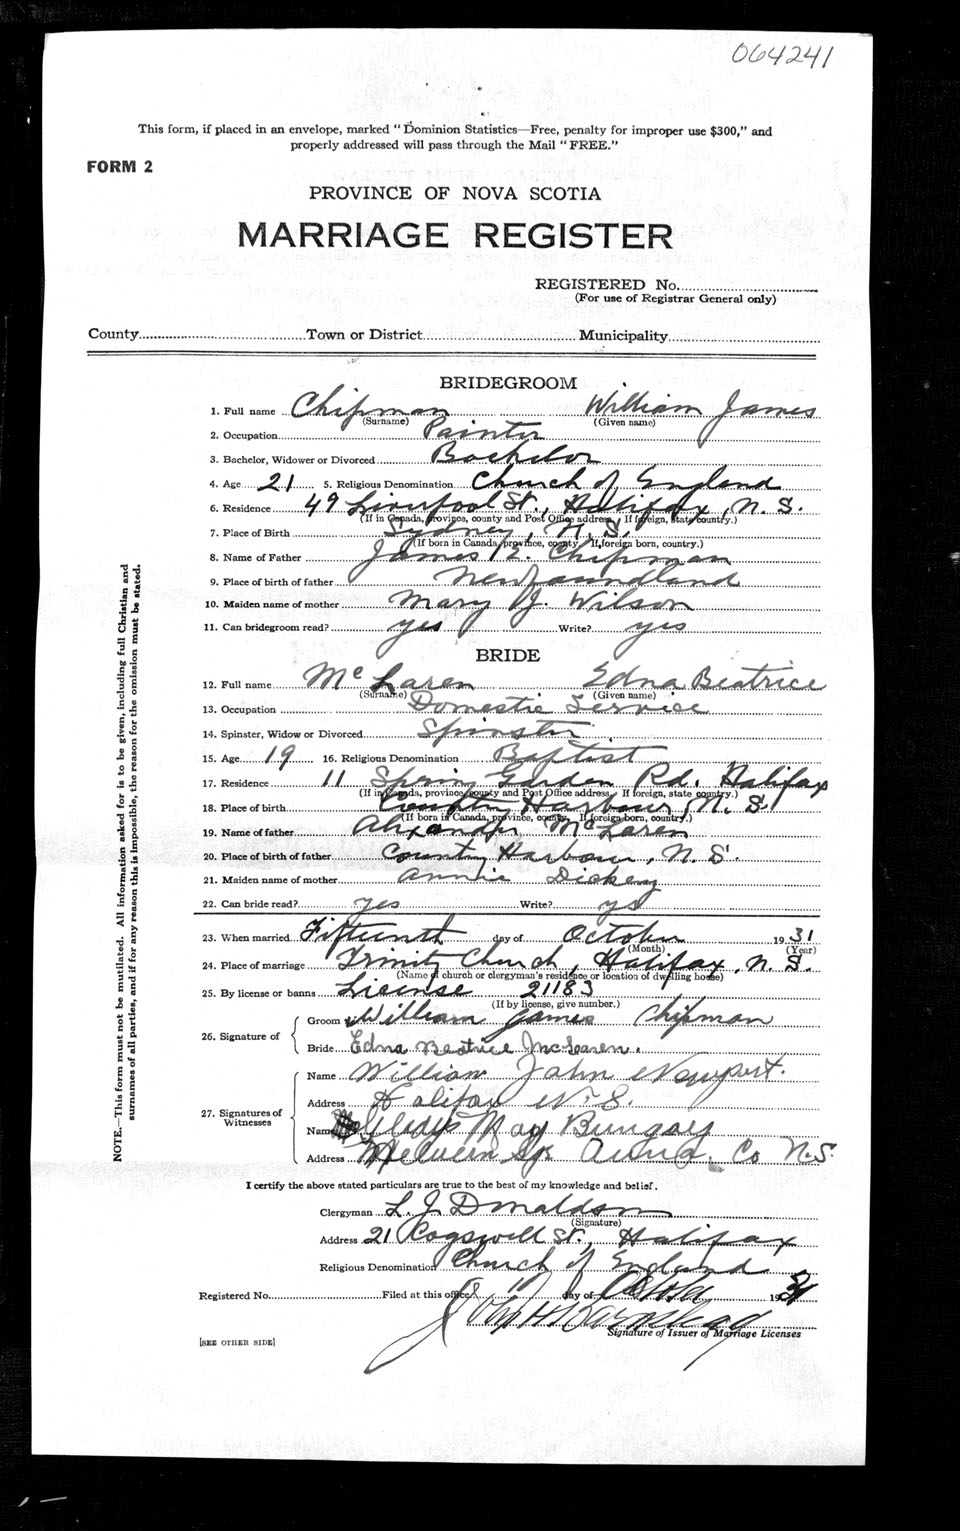 064241
This form, if placed in an envelope, marked "Dominion Statistics—Free, penalty for improper use $300," and
properly addressed will pass through the Mail "FREE."
FORM 2
PROVINCE OF NOVA SCOTIA
MARRIAGE REGISTER
REGISTERED No.
(For use of Registrar General only)
County Town or District Municipality
BRIDEGROOM
1. Full name Chipman William James
(Surname) (Given name)
2. Occupation Painter
3. Bachelor, Widower or Divorced Bachelor
4. Age 21 5. Religious Denomination Church of England
6. Residence 49 Liverpool St., Halifax, N. S.
(If in Canada, province, county and Post Office address. If foreign, state country.)
7. Place of Birth Sydney, N. S.
(If born in Canada, province, county. If foreign born, country.)
8. Name of Father James E. Chipman
9. Place of birth of father Newfoundland
10. Maiden name of mother Mary J. Wilson
11. Can bridegroom read? yes Write? yes
BRIDE
12. Full name McLaren Edna Beatrice
(Surname) (Given name)
13. Occupation Domestic Service
14. Spinster, Widow or Divorced Spinster
15. Age 19 16. Religious Denomination Baptist
17. Residence 11 Spring Garden Rd. Halifax
(If in Canada, province, county and Post Office address. If foreign, state country.)
18. Place of birth Country Harbour, N. S.
(If born in Canada, province, county. If foreign born, country.)
19. Name of father Alexander McLaren
20. Place of birth of father Country Harbour, N. S.
21. Maiden name of mother Annie Dickey
22. Can bride read? yes Write? yes
23. When married Fifteenth day of October 1931
(Month) (Year)
24. Place of marriage Trinity Church, Halifax, N. S.
(Name of church or clergyman's residence or location of dwelling house)
25. By license or banns License 21183
(If by license, give number.)
26. Signature of
Groom William James Chipman
Bride Edna Beatrice McLaren.
27. Signatures of Witnesses
Name William John Newport.
Address Halifax N. S.
Name Gladys May Bungay
Address Melvern Sq Anna. Co N.S
I certify the above stated particulars are true to the best of my knowledge and belief.
Clergyman L. J. Donaldson
(Signature)
Address 21 Cogswell St., Halifax
Religious Denomination Church of England
Registered No. Filed at this office day of October 1931
Signature of Issuer of Marriage Licenses
[SEE OTHER SIDE]
NOTE.—This form must not be mutilated. All information asked for is to be given, including full Christian and
surnames of all parties, and if for any reason this is impossible, the reason for the omission must be stated.